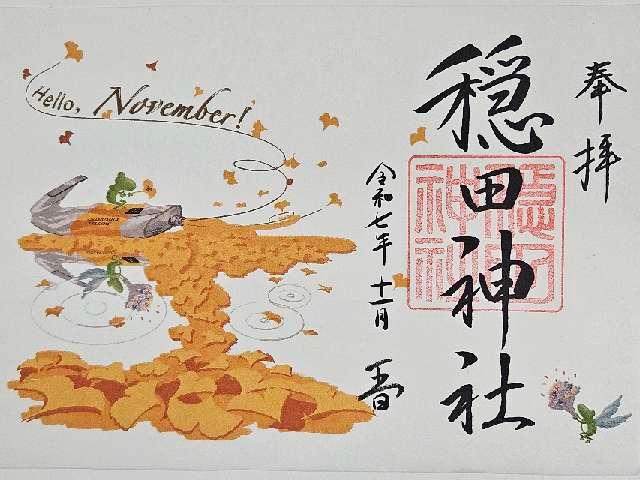 奉拝
穏田神社
穏田
神社
令和七年 十一月 吉日
Hello, November!